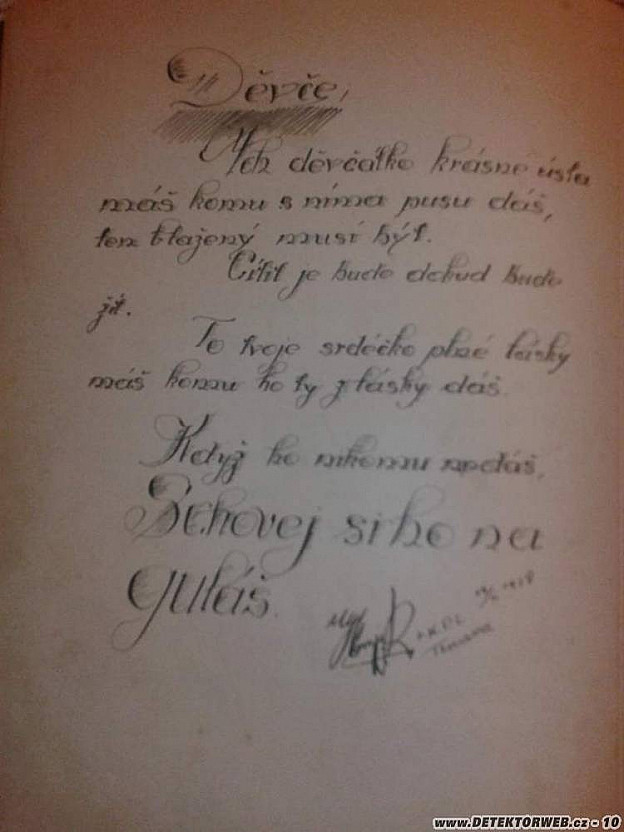 Děvče,
Ach děvčátko krásné ústa
máš komu s níma pusu dáš,
ten blažený musí být.
Cítit je bude dokud bude
žít.
To tvoje srdéčko plné lásky
máš komu ho ty z lásky dáš.
Když ho nikomu nedáš,
Schovej si ho na
Guláš.
www.DETEKTORWEB.cz - 10